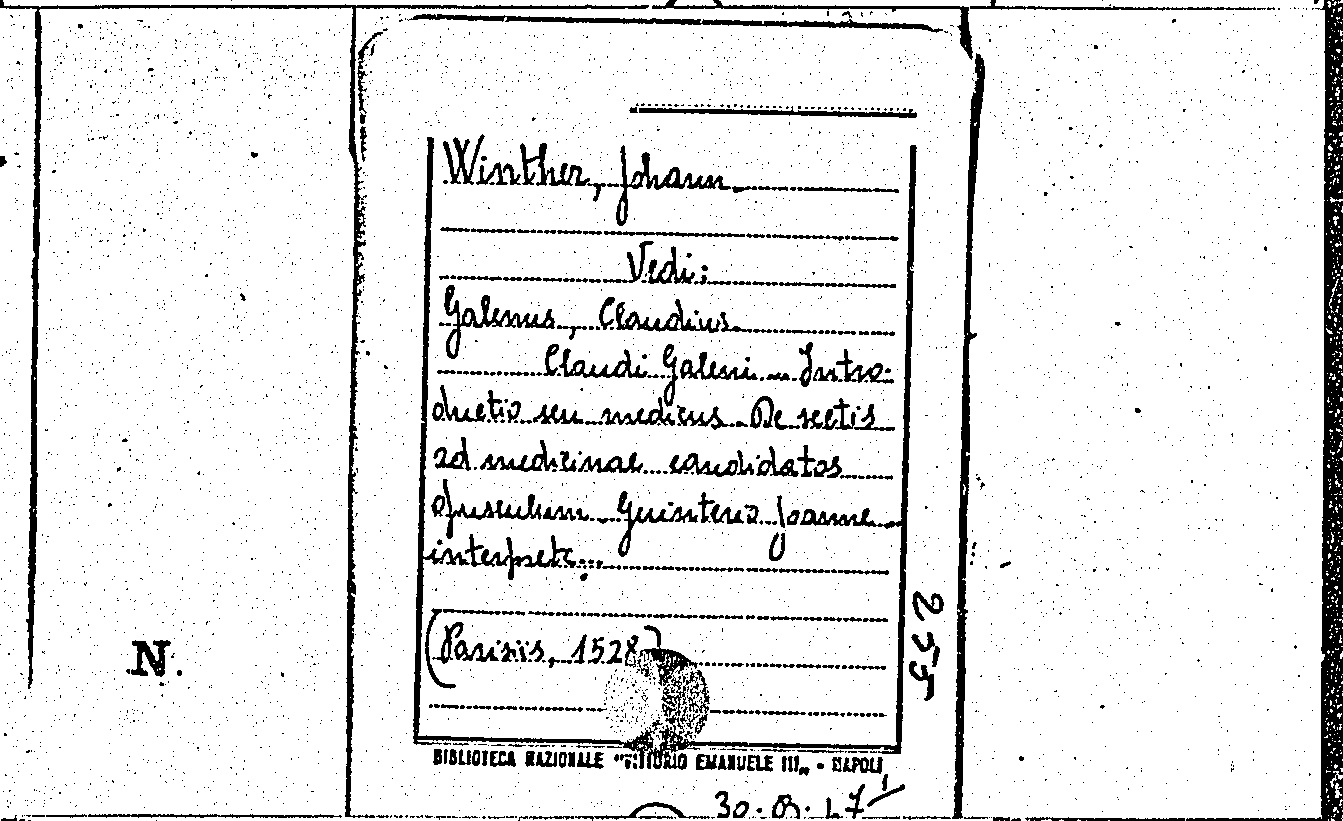 Winther, Johann
Vedi:
Galenus, Claudius
Claudi Galeni... Intro-
ductio seu medicus. De sectis
ad medicinae candidatos
opusculum. Guinterio Joanne
interprete...
(Parisiis, 1528)
255
N.
BIBLIOTECA NAZIONALE "VITTORIO EMANUELE III„ - NAPOLI